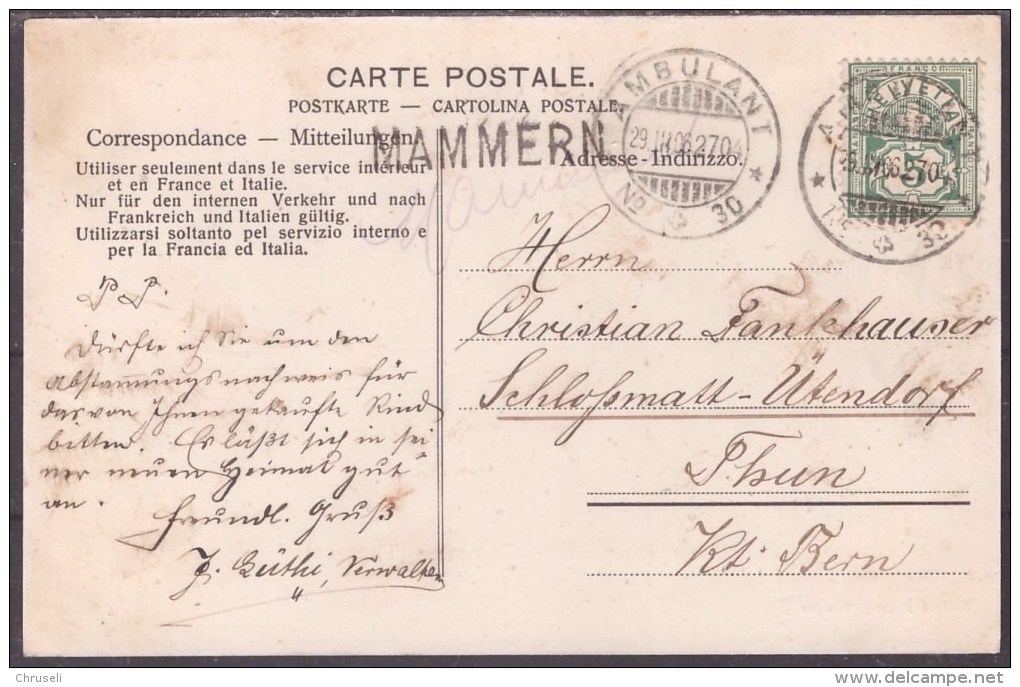 CARTE POSTALE.
POSTKARTE — CARTOLINA POSTALE.
Correspondance — Mitteilungen.
MAMMERN
Adresse - Indirizzo.
Utiliser seulement dans le service intérieur
et en France et Italie.
Nur für den internen Verkehr und nach
Frankreich und Italien gültig.
Utilizzarsi soltanto pel servizio interno e
per la Francia ed Italia.
AMBULANT
29. 06.2704
No 30
FRANCO
HELVETIA
5
P. P.
Dürfte ich Sie um den
Abstammungsnachweis für
das von Ihnen gekaufte Rind
bitten. Es läßt sich in sei
ner neuen Heimat gut
an.
Freundl. Gruß
J. Lüthi, Verwalter
Herrn
Christian Fankhauser
Schloßmatt - Ütendorf
Thun
Kt. Bern
Chruseli
delcampe.net